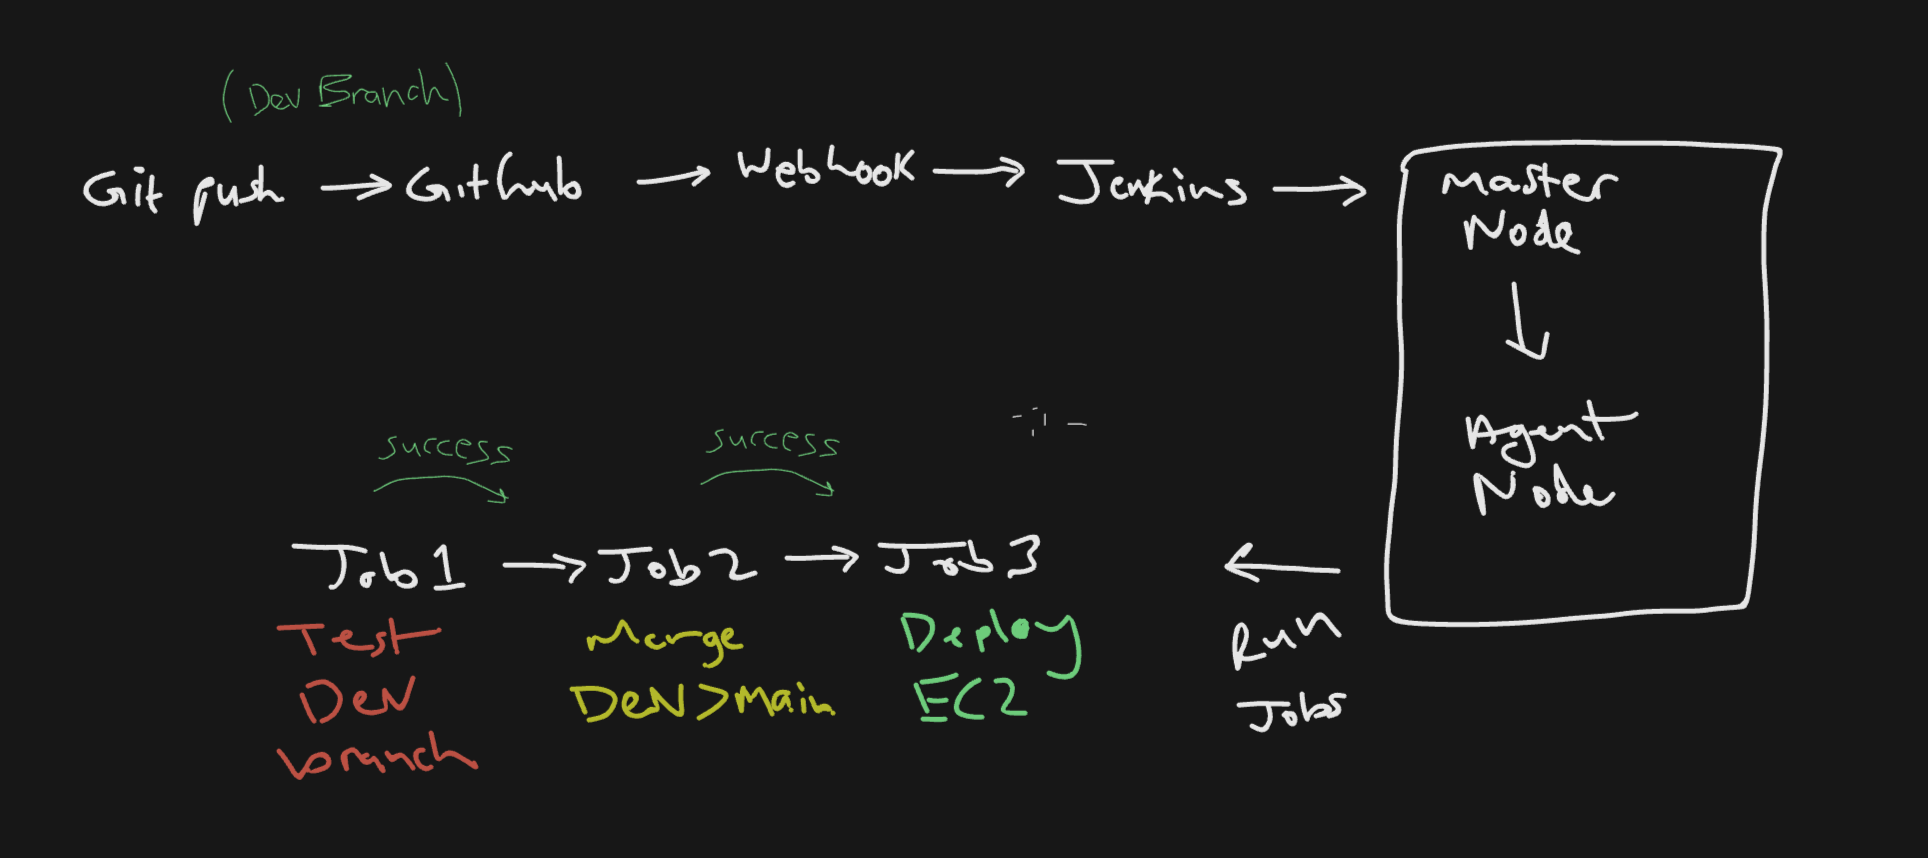 (Dev Branch)
Git push → Github → Webhook → Jenkins →
Master
Node
↓
Agent
Node
success success
Job1 → Job2 → Job3 ←
Test
Dev
branch
Merge
Dev>Main
Deploy
EC2
Run
Jobs